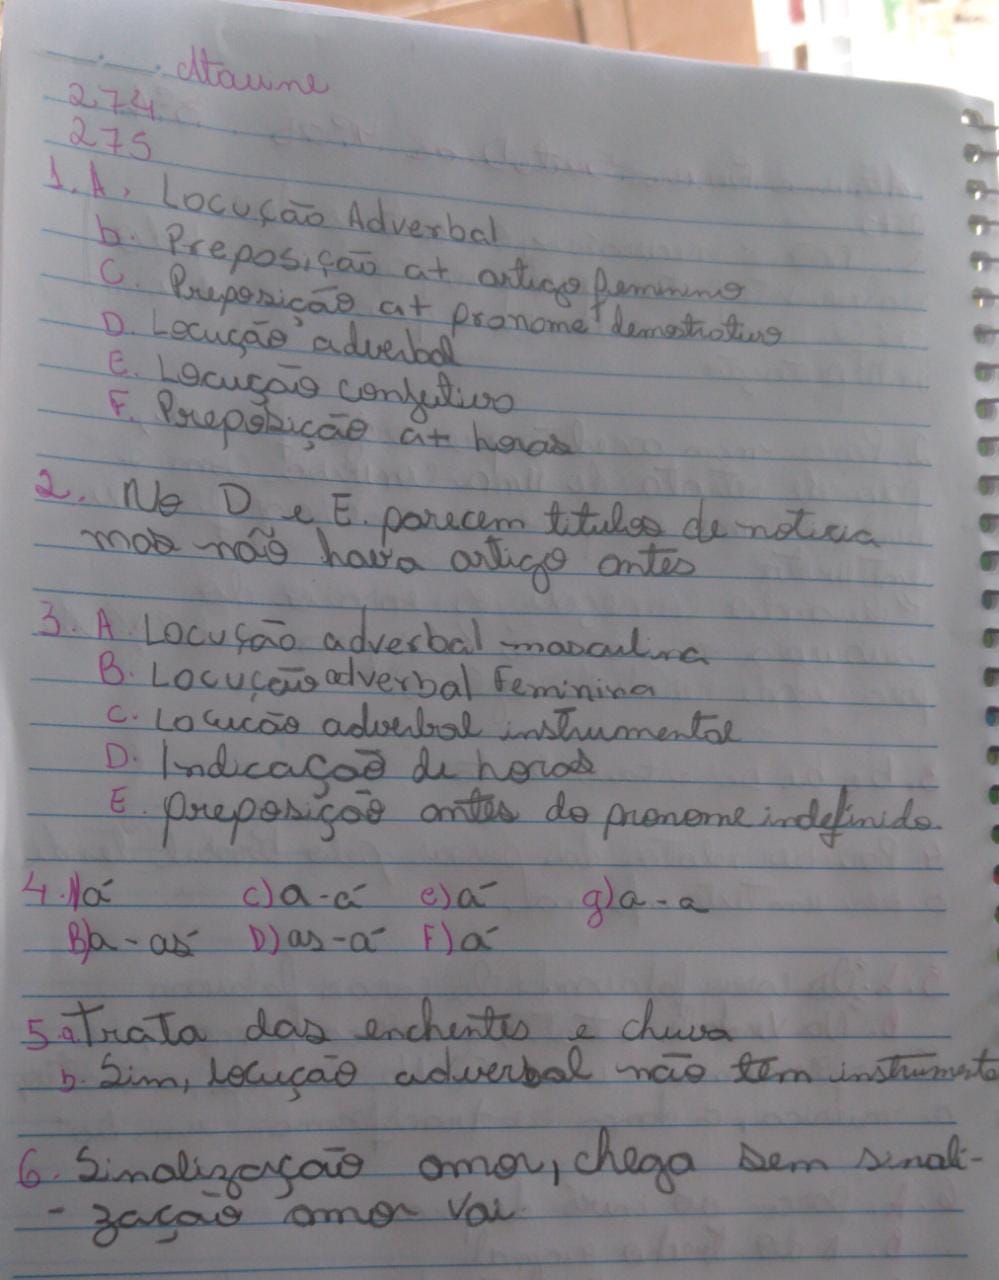 Ataune
274
275
1. A. Locução Adverbal
b. Preposição a+ artigo feminino
C. Preposição a+ pronome demostrotivo
D. Locução adverbal
E. Locução conjutivo
F. Preposição a+ horas
2. No D e E. parecem titulos de noticia
mas não hava artigo antes
3. A. Locução adverbal masculina
B. Locução adverbal Feminina
C. Locucão adverbal instrumental
D. Indicação de horas
E. preposição antes do pronome indefinido.
4. A) á c) a - á e) á g) a - a
B) a - ás D) as - á F) á
5. a. Trata das enchentes e chuva
b. Sim, locução adverbal não tem instrumento
6. Sinalização amor, chega sem sinali-
- zação amor vai.